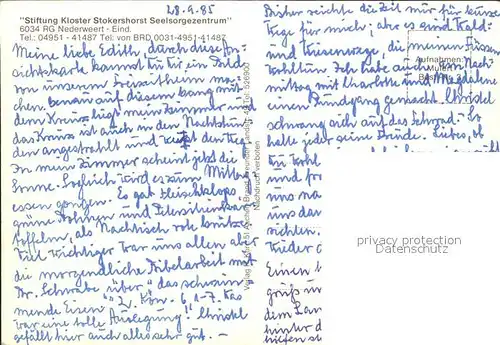 28.9.85
"Stiftung Kloster Stokershorst Seelsorgezentrum"
6034 RG Nederweert - Eind.
Tel.: 04951 - 41487 Tel: von BRD 0031-4951-41487
Meine liebe Edith, durch diese An-
sichtskarte kannst du dir ein Bild
von unserem Freizeitheim ma-
chen. Genau auf diesem Gang mit
dem Kreuz liegt mein Zimmer und
das Kreuz ist auch in den Nachtstun-
den angestrahlt und den Weg
In mein Zimmer scheint jetzt die
Sonne. Sogleich wird es zum Mittag-
essen gongen. Es gab Fleischklops
grüne Bohnen und Petersilienkar-
toffeln, als Nachtisch rote Grütze
Viel wichtiger war uns allen aber
die morgendliche Bibelarbeit mit
Dr. Schrabe über "das schwim
mende Eisen" 2. Kön. 6,1-7. Das
war eine tolle Auslegung! Christel
gefällt hier auch alles sehr gut. -
Bisher reichte die Zeit nur für kurze
Wege für mich; aber es sind Wald-
und Wiesenwege die meinen Füssen
wohltun. Ich habe auch am Nach-
mittag mit Charlotte und Magdalen
einen Rundgang gemacht. Christel
schwang sich aufs Fahrrad. So
hatte jeder seine Freude.
und fr
uns na
uns
das
sichten.
Wieder
Einen
grüß
dem Lan
hinter d
Aufnahmen:
Best
Nachdruck verboten
privacy protection
Datenschutz